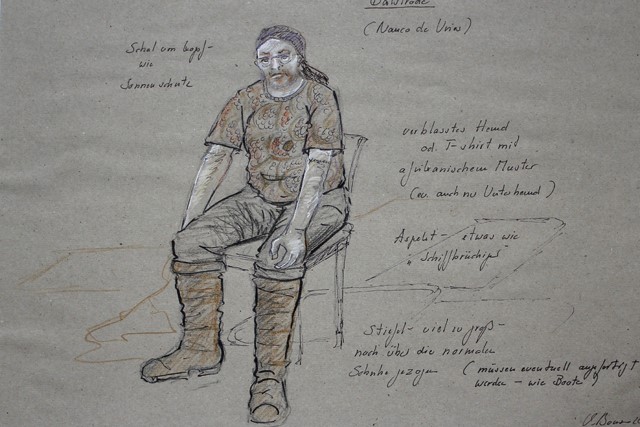 Waldtraote
(Nanco de Vries)
Schal um kopf-
wie
Sonnenschutz
verblasstes Hemd
od. T-shirt mit
afrikanischem Muster
(ev. auch nur Unterhemd)
Aspekt - etwas wie
"Schiffbrüchige"
Stiefel - viel zu groß -
noch über die normalen
Schuhe gezogen (müssen eventuell angefertigt
werden - wie Boote)